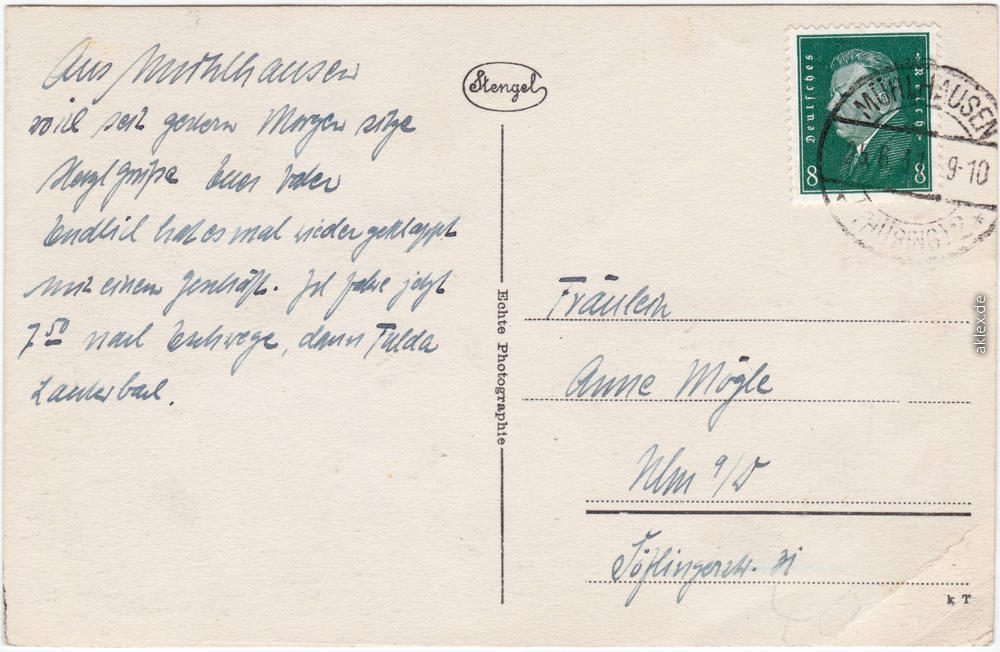 Aus Mühlhausen
wo ich seit gestern Morgen sitze
Herzl Grüße Euer Vater
Endlich hat es mal wieder geklappt
mit einem Geschäft. Ich fahre jetzt
7 50 nach Eschwege, dann Fulda
Lauterbach.
Stengel
Echte Photographie
Deutsches Reich
8 8
MÜHLHAUSEN
9-10
(THÜRING) 2 *
Fräulein
Anne Mögle
Ulm a/D
Söflingerstr. 31
k T
aklex.de